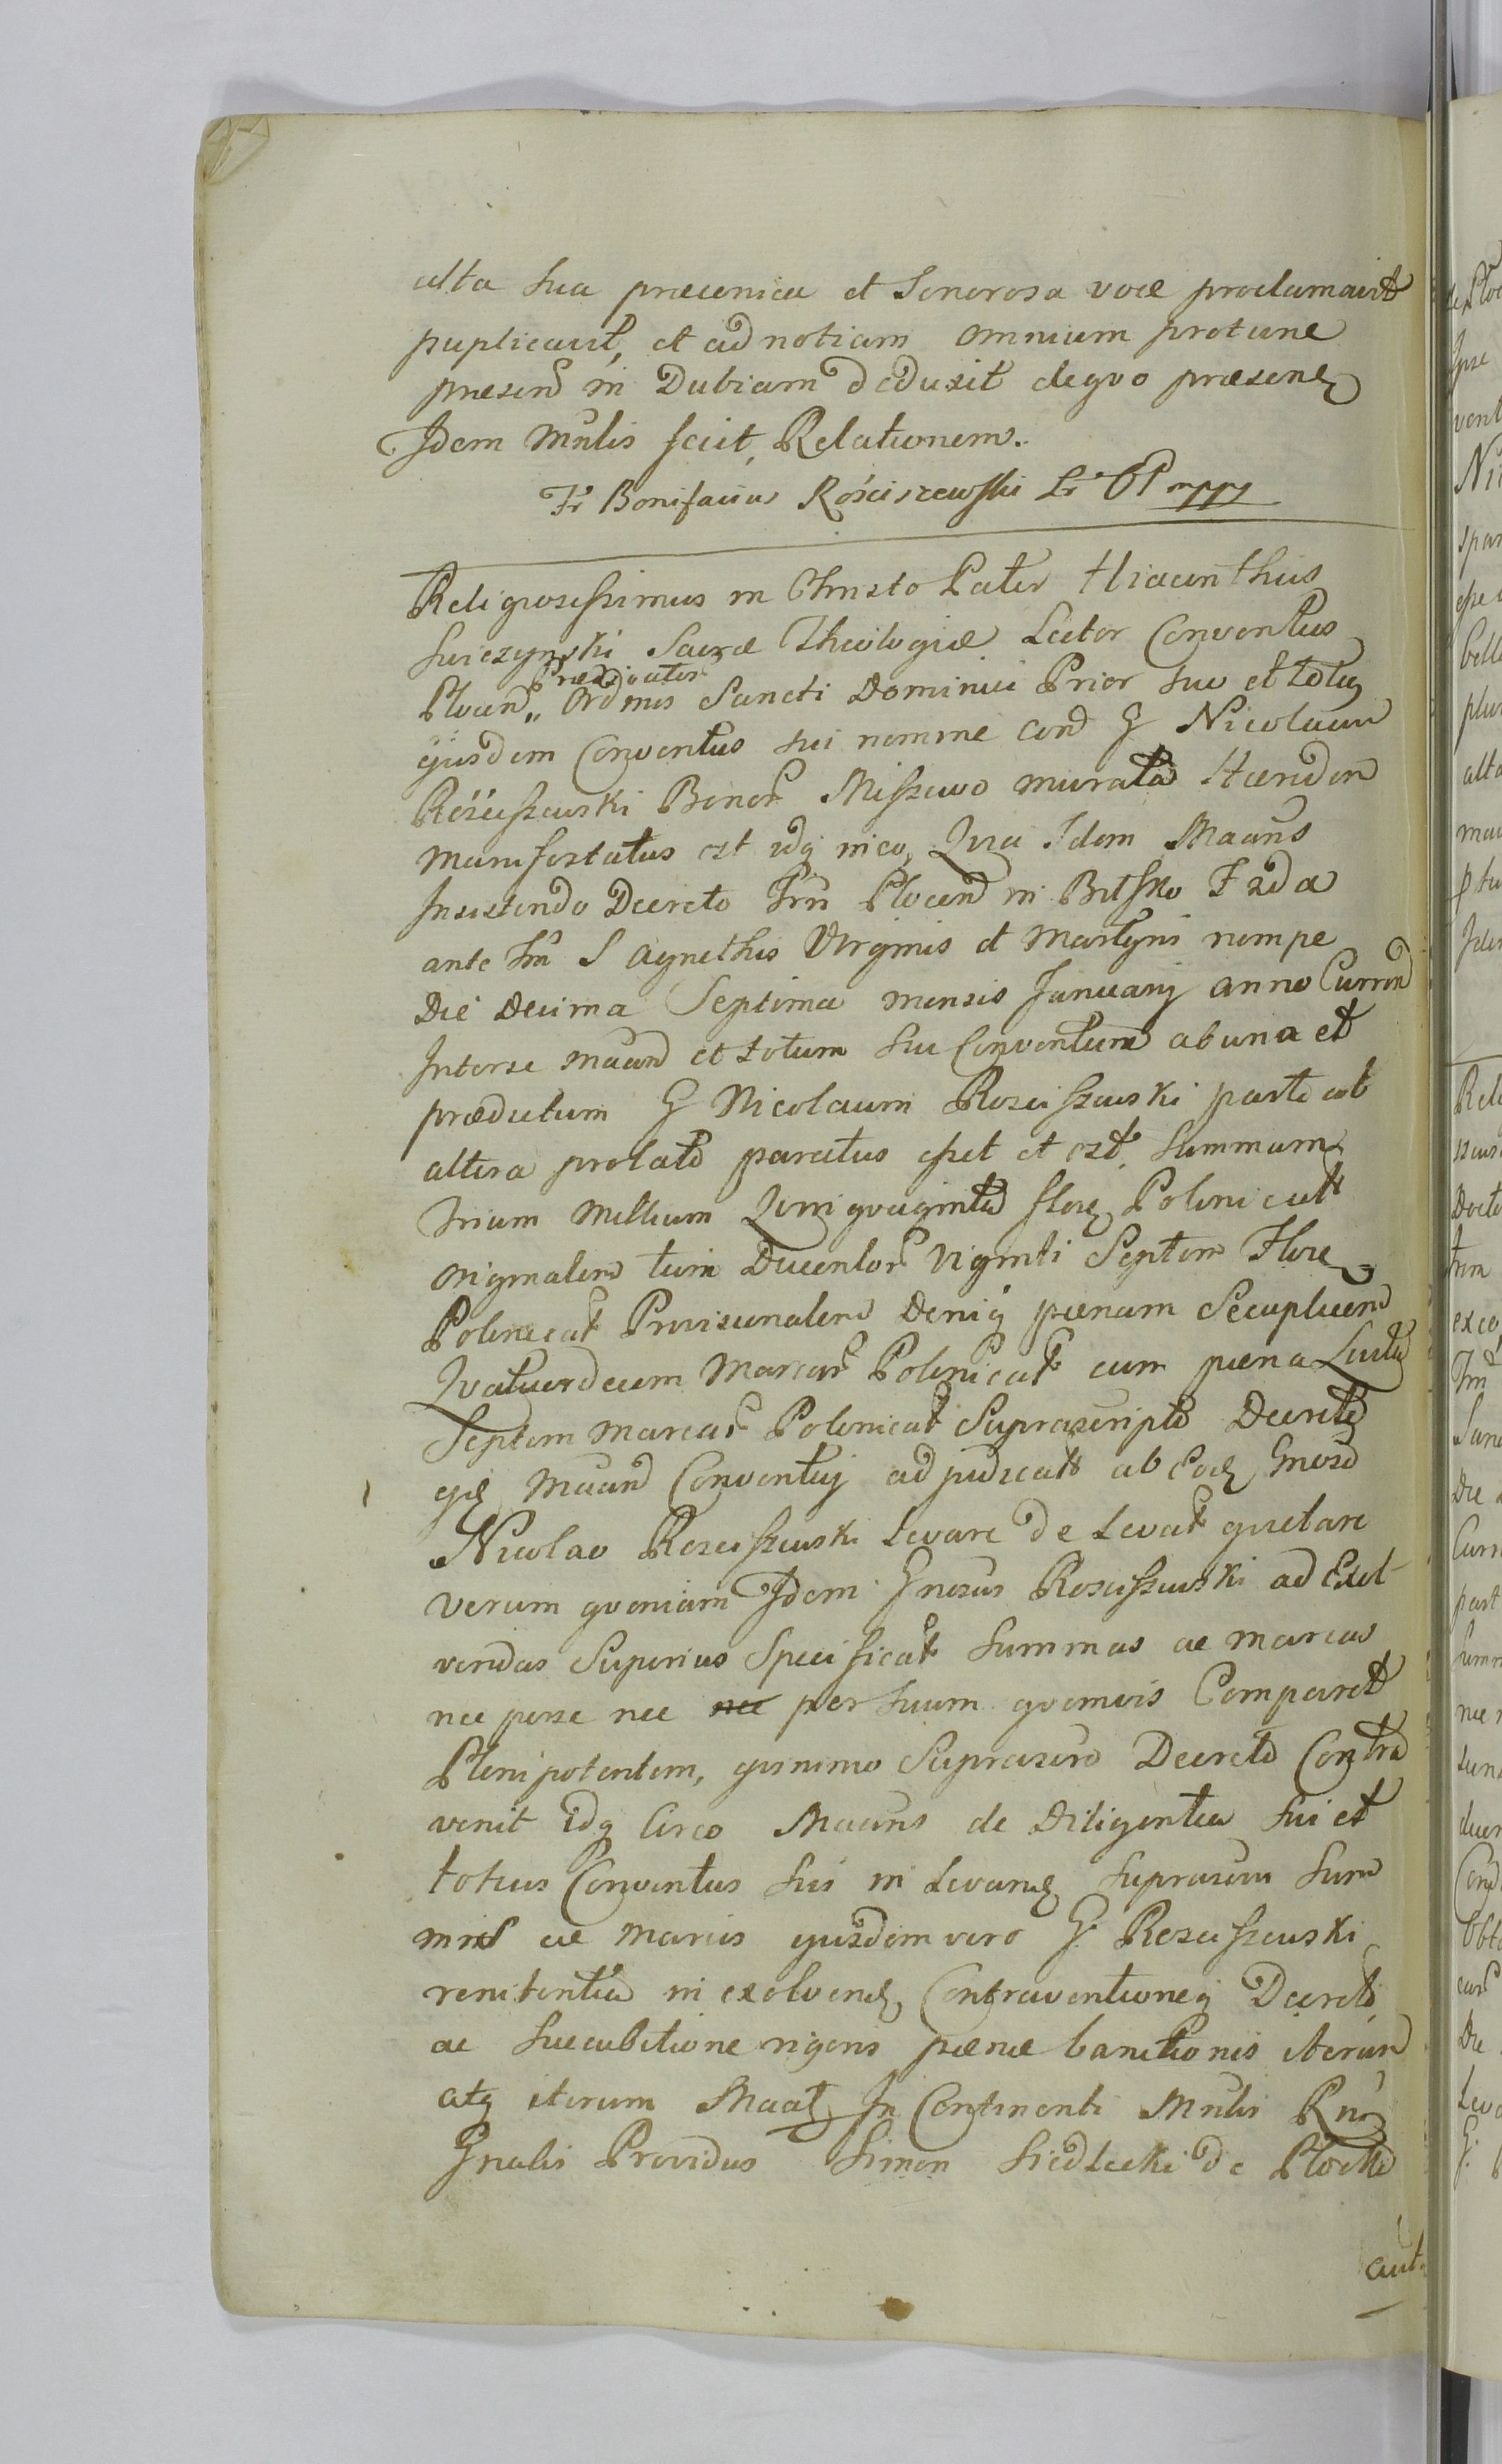 alta sua præconica et Sonorosa voce proclamavit
puplicavit, et ad notiam omnium protunc
præsen in Dubiam deduxit de qvo præsenz
Idem Mnlis fecit, Relationem.
Fr Bonifacius Rościszewski Lr OP mppy
Religiosissimus in Christo Pater Hiacinthus
Swiezynski Sacræ Theologiæ Lector Conventus
Prædicator
Plocen,, Ordinis Sancti Dominici Prior suo et totiz
ejusdem Conventus sui nomine con G Nicolaum
Rosciszewski Bonor Miszewo murata Hæredem
manifestatus est idq nico, Qvia Idem Maans
Insistendo Decreto Trii Plocen in Bilsko F 2da
ante Fm S Agnethis Virginis et Martyris nempe
Die Decima Septima mensis Januarij anno Curren
Interse maan et totum sui Conventum ab una et
prædictum G Nicolaum Rosciszewski parte ab
altera prolato paratus esset et est, Summam
Trium Millium Qvinqvaginta florz Polonicalt
originalem tum Ducentor Viginti Septem Flore
Polonicat Provisionalem Deniq pænam Secuplicem
Qvatuordecem Marcar Polonicat cum pæna Luita
Septem marcar Polonicat Suprascripto Decreto
eje Maan Conventuj adjudicat ab Eodz Gneroso
Nicolao Rosciszewski Levare de Levat qvietare
verum qvoniam Idem Gnosus Rosciszewski ad Exol
vendas Superius Specificat Summas ac marcas
nec perse nec per suum qvemvis Comparet
Plenipotentem, qvinimo Suprascro Decreto Contra
venit idq Circo Maans de Diligentia sui et
totius Conventus sui in Levandz suprascrii Sum
mis ac marcis ejusdem vero G. Rosciszewski
renitentia in exolvendz, Contraventioneq Decreti
ac succubitione rigoris pænæ banitionis iterum
atq iterum Maatz In Continenti Mnlis Rni
Gnalis Providus Simon Siedlecki de Plocko
aut